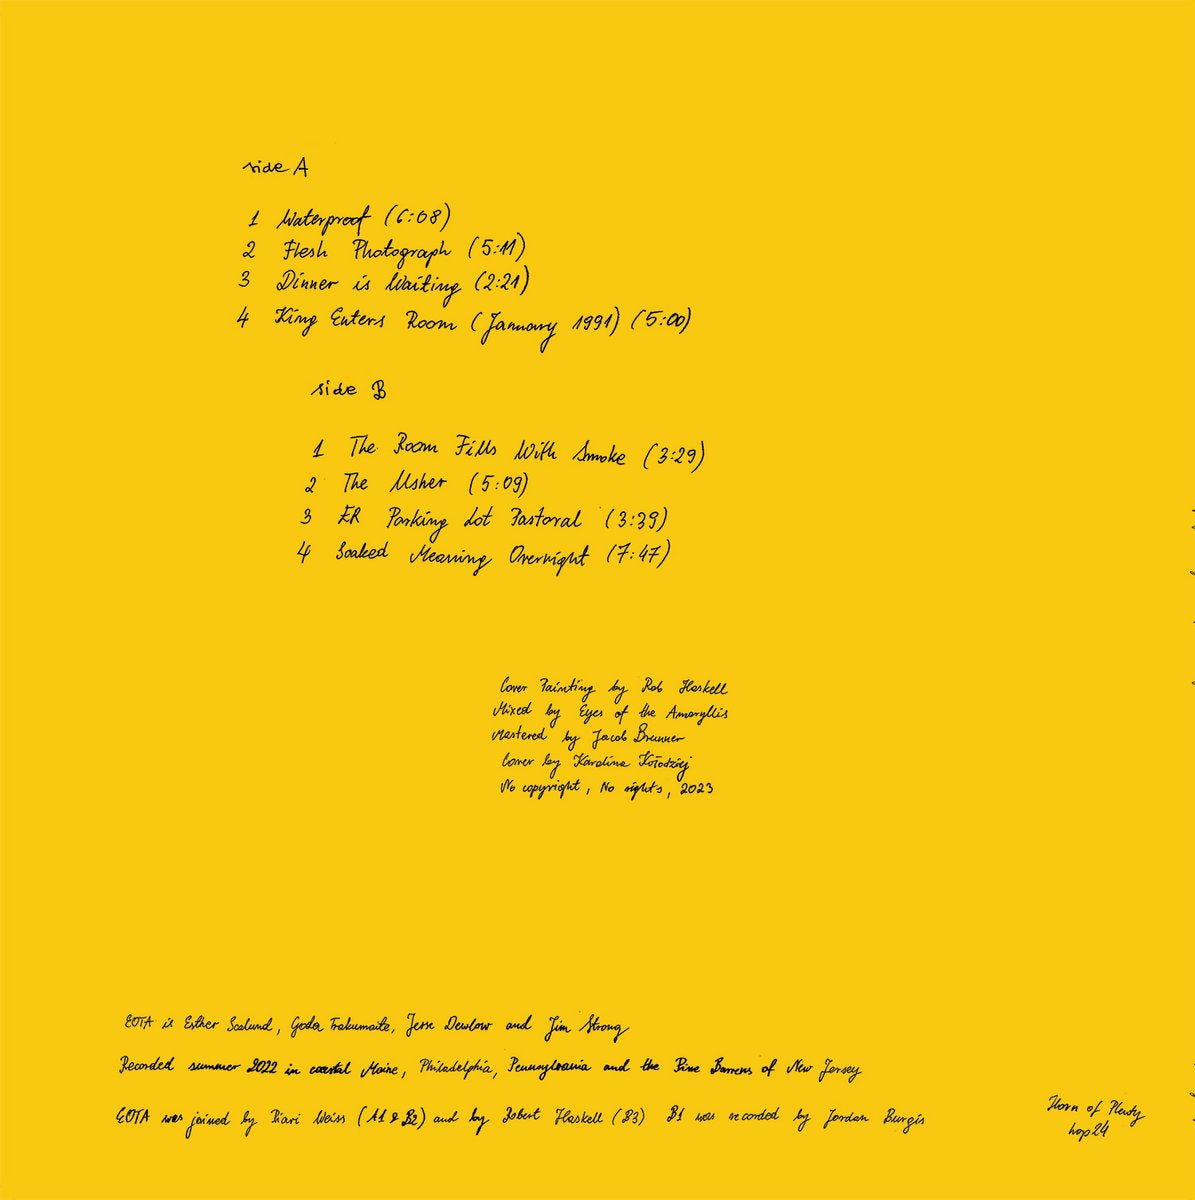 side A
1 Waterproof (6:08)
2 Flesh Photograph (5:11)
3 Dinner is Waiting (2:21)
4 King Enters Room (January 1991) (5:00)
side B
1 The Room Fills With Smoke (3:29)
2 The Usher (5:09)
3 ER Parking Lot Pastoral (3:39)
4 Soaked Meaning Overnight (7:47)
Cover Painting by Rob Haskell
Mixed by Eyes of the Amaryllis
Mastered by Jacob Brunner
Cover by Karolina Kołodziej
No copyright, No rights, 2023
EOTA is Esther Scalund, Goda Trakumaite, Jesse Dewlow and Jim Strong
Recorded summer 2022 in coastal Maine, Philadelphia, Pennsylvania and the Pine Barrens of New Jersey
EOTA was joined by Weiss (A1 & B2) and by Robert Haskell (B3) B1 was recorded by Jordan Burgis
Horn of Plenty
hop24